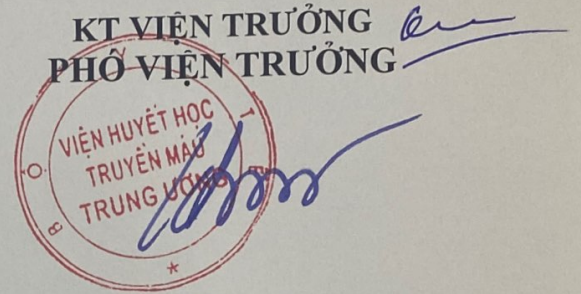 KT VIỆN TRƯỞNG
PHÓ VIỆN TRƯỞNG
VIỆN HUYẾT HỌC
TRUYỀN MÁU
TRUNG ƯƠNG
BỘ